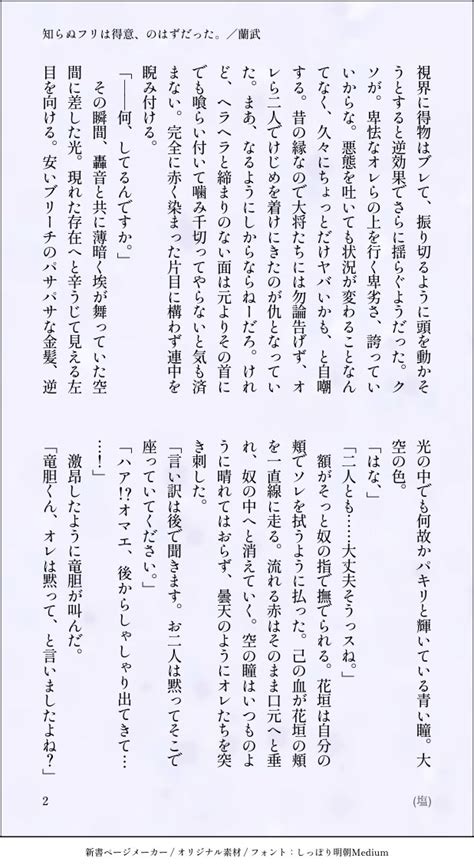 知らぬフリは得意、のはずだった。／蘭武
視界に得物はブレて、振り切るように頭を動かそ
うとすると逆効果でさらに揺らぐようだった。ク
ソが。卑怯なオレらの上を行く卑劣さ、誇ってい
いからな。悪態を吐いても状況が変わることなん
てなく、久々にちょっとだけヤバいかも、と自嘲
する。昔の縁なので大将たちには勿論告げず、オ
レら二人でけじめを着けにきたのが仇となってい
た。まあ、なるようにしからならねーだろ。けれ
ど、ヘラヘラと締まりのない面は元よりその首に
でも喰らい付いて噛み千切ってやらないと気も済
まない。完全に赤く染まった片目に構わず連中を
睨み付ける。
「――何、してるんですか。」
その瞬間、轟音と共に薄暗く埃が舞っていた空
間に差した光。現れた存在へと辛うじて見える左
目を向ける。安いブリーチのパサパサな金髪、逆
光の中でも何故かパキリと輝いている青い瞳。大
空の色。
「はな、」
「二人とも……大丈夫そうっスね。」
額がそっと奴の指で撫でられる。花垣は自分の
頬でソレを拭うように払った。己の血が花垣の頬
を一直線に走る。流れる赤はそのまま口元へと垂
れ、奴の中へと消えていく。空の瞳はいつものよ
うに晴れてはおらず、曇天のようにオレたちを突
き刺した。
「言い訳は後で聞きます。お二人は黙ってそこで
座っていてください。」
「ハア!?オマエ、後からしゃしゃり出てきて…
…！」
激昂したように竜胆が叫んだ。
「竜胆くん、オレは黙って、と言いましたよね？」
2
(塩)
新書ページメーカー / オリジナル素材 / フォント：しっぽり明朝Medium